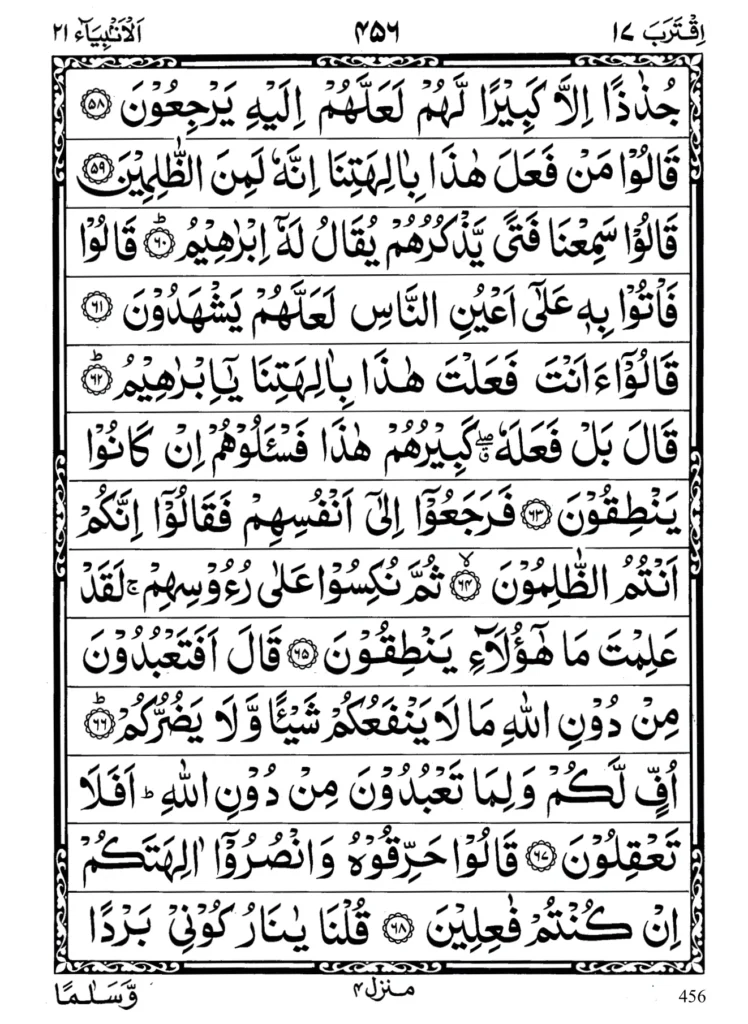 اِقْتَرَبَ ١٧ ۴۵۶ اَلْاَنْبِيَآء ٢١
جُذٰذًا اِلَّا كَبِيْرًا لَّهُمْ لَعَلَّهُمْ اِلَيْهِ يَرْجِعُوْنَ ۵۸
قَالُوْا مَنْ فَعَلَ هٰذَا بِاٰلِهَتِنَاۤ اِنَّهٗ لَمِنَ الظّٰلِمِيْنَ ۵۹
قَالُوْا سَمِعْنَا فَتًى يَّذْكُرُهُمْ يُقَالُ لَهٗۤ اِبْرٰهِيْمُؕ ۶۰ قَالُوْا
فَاْتُوْا بِهٖ عَلٰۤى اَعْيُنِ النَّاسِ لَعَلَّهُمْ يَشْهَدُوْنَ ۶۱
قَالُوْۤا ءَاَنْتَ فَعَلْتَ هٰذَا بِاٰلِهَتِنَا يٰۤاِبْرٰهِيْمُؕ ۶۲
قَالَ بَلْ فَعَلَهٗ ۖۗ كَبِيْرُهُمْ هٰذَا فَسْـَٔلُوْهُمْ اِنْ كَانُوْا
يَنْطِقُوْنَ ۶۳ فَرَجَعُوْۤا اِلٰۤى اَنْفُسِهِمْ فَقَالُوْۤا اِنَّكُمْ
اَنْتُمُ الظّٰلِمُوْنَۙ ۶۴ ثُمَّ نُكِسُوْا عَلٰى رُءُوْسِهِمْۚ لَقَدْ
عَلِمْتَ مَا هٰۤؤُلَآءِ يَنْطِقُوْنَ ۶۵ قَالَ اَفَتَعْبُدُوْنَ
مِنْ دُوْنِ اللّٰهِ مَا لَا يَنْفَعُكُمْ شَيْـًٔا وَّلَا يَضُرُّكُمْؕ ۶۶
اُفٍّ لَّكُمْ وَلِمَا تَعْبُدُوْنَ مِنْ دُوْنِ اللّٰهِؕ اَفَلَا
تَعْقِلُوْنَ ۶۷ قَالُوْا حَرِّقُوْهُ وَانْصُرُوْۤا اٰلِهَتَكُمْ
اِنْ كُنْتُمْ فٰعِلِيْنَ ۶۸ قُلْنَا يٰنَارُ كُوْنِيْ بَرْدًا
وَّسَلٰمًا منزل ۴ 456